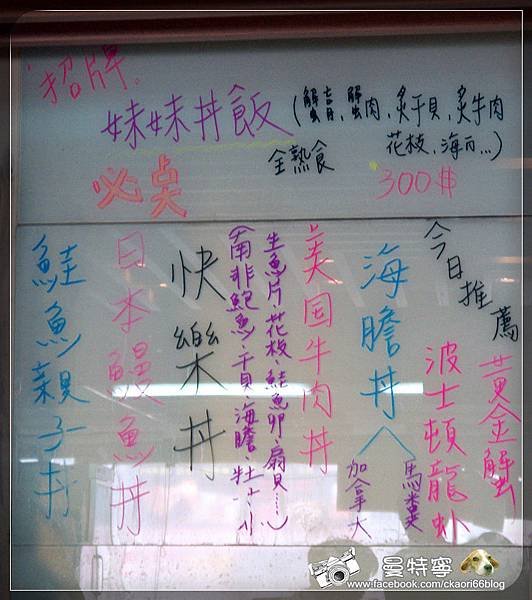 招牌。
妹妹丼飯
(蟹膏、蟹肉、炙干貝、炙牛肉
花枝、海瓜...)
全熟食
必点
300$
今日推薦
黃金蟹
波士頓龍蝦
海膽丼
馬糞
加拿大
美国牛肉丼
生魚片、花枝、鮭魚卵、扇貝......)
(南非鮑魚、干貝、海膽、牡
快樂丼
日本鰻魚丼
鮭魚親子丼
曼特寧
www.facebook.com/ckaori66blog